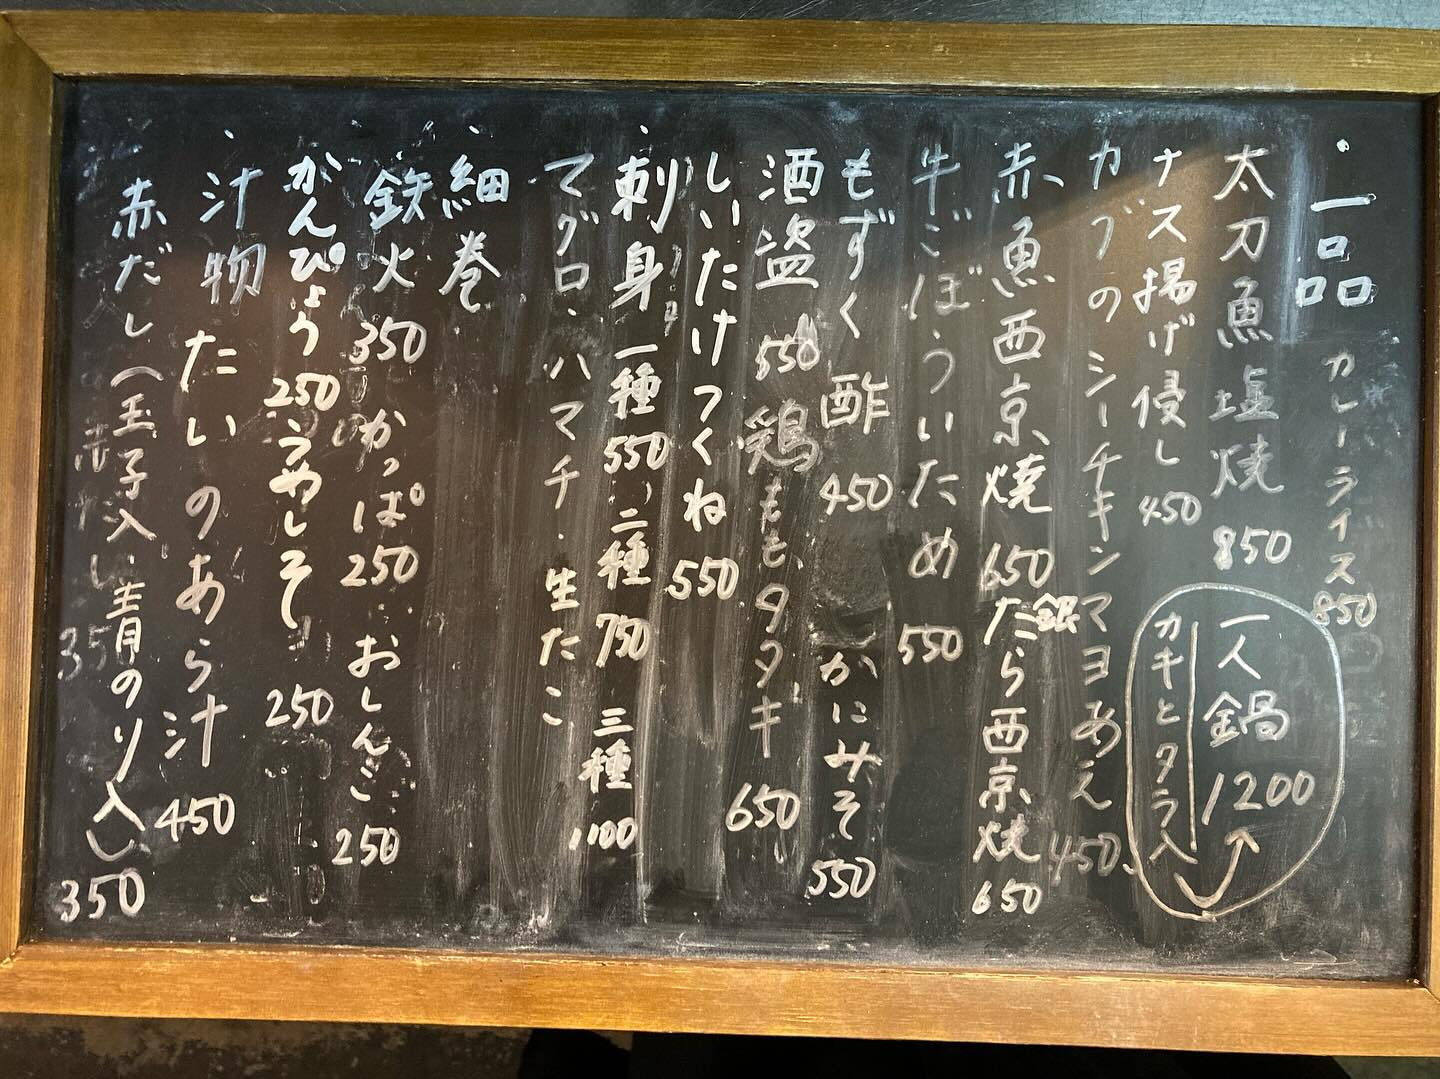 ・一品 カレーライス 850
太刀魚塩焼 850
一人鍋 1200
カキとタラ入
ナス揚げ侵し 450
カブのシーチキンマヨあえ 450
赤魚西京焼 650 銀だら西京焼 650
牛ごぼういため 550
もずく酢 450 かにみそ 550
酒盗 550 鶏ももタタキ 650
しいたけつくね 550
・刺身 一種 550 二種 750 三種 1100
マグロ・ハマチ・生たこ
・細巻
鉄火 350 かっぱ 250 おしんこ 250
かんぴょう 250 うめしそ 250
・汁物 たいのあら汁 450
赤だし(玉子入・青のり入) 350